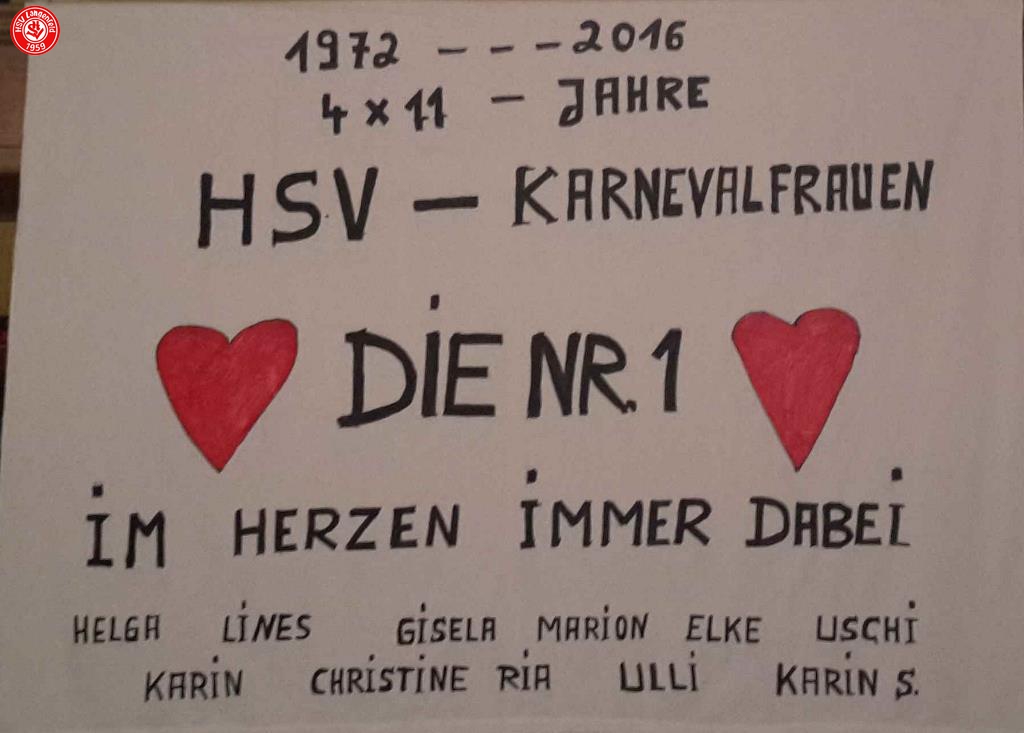 HSV Langenfeld
1959
1972 - - - 2016
4 x 11 - JAHRE
HSV - KARNEVALFRAUEN
DiE NR. 1
iM HERZEN iMMER DABEi
HELGA LiNES GiSELA MARiON ELKE USCHi
KARiN CHRiSTiNE RiA ULLi KARiN S.